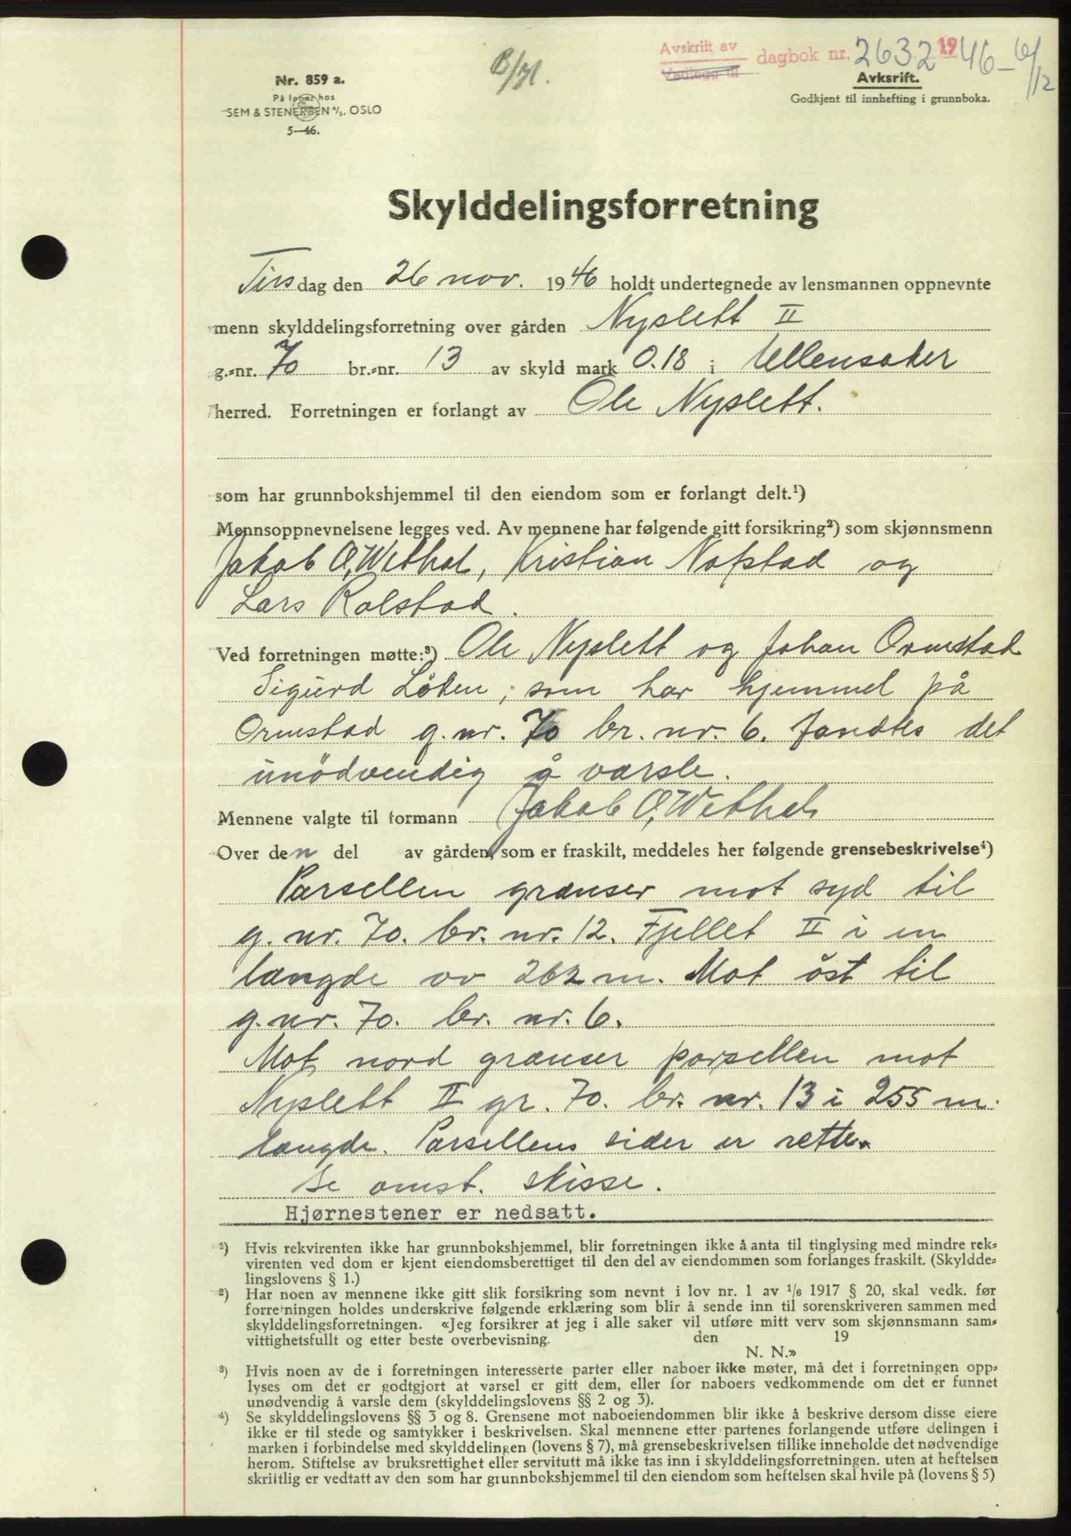 Avskrift av
Vedlegg til
dagbok nr. 2632 1946 - 6/12
B/71.
Nr. 859 a.
På lager hos
SEM & STENERSEN A/S. OSLO
5—46.
Avksrift.
Godkjent til innhefting i grunnboka.
Skylddelingsforretning
Tirsdag den 26 nov. 1946 holdt undertegnede av lensmannen oppnevnte
menn skylddelingsforretning over gården Nyslett II
g.-nr. 70 br.-nr. 13 av skyld mark 0.18 i Ullensaker
herred. Forretningen er forlangt av Ole Nyslett.
som har grunnbokshjemmel til den eiendom som er forlangt delt.¹)
Mennsoppnevnelsene legges ved. Av mennene har følgende gitt forsikring²) som skjønnsmenn
Jakob O. Wethal, Kristian Nafstad og
Lars Ralstad.
Ved forretningen møtte:³) Ole Nyslett og Johan Ormstad
Sigurd Löken, som har hjemmel på
Ormstad g. nr. 70 br. nr. 6. fandtes det
unödvendig å varsle.
Mennene valgte til formann Jakob O. Wethal
Over den del av gården, som er fraskilt, meddeles her følgende grensebeskrivelse⁴)
Parsellen grænser mot syd til
g. nr. 70. br. nr. 12. Fjellet II i en
længde av 262 m. Mot öst til
g. nr. 70. br. nr. 6.
Mot nord grænser parsellen mot
Nyslett II gr. 70. br. nr. 13 i 255 m.
længde. Parsellens sider er rette.
Se omst. skisse.
Hjørnestener er nedsatt.
¹) Hvis rekvirenten ikke har grunnbokshjemmel, blir forretningen ikke å anta til tinglysing med mindre rek-
virenten ved dom er kjent eiendomsberettiget til den del av eiendommen som forlanges fraskilt. (Skyldde-
lingslovens § 1.)
²) Har noen av mennene ikke gitt slik forsikring som nevnt i lov nr. 1 av 1/6 1917 § 20, skal vedk. før
forretningen holdes underskrive følgende erklæring som blir å sende inn til sorenskriveren sammen med
skylddelingsforretningen. «Jeg forsikrer at jeg i alle saker vil utføre mitt verv som skjønnsmann sam-
vittighetsfullt og etter beste overbevisning. den 19
N. N.»
³) Hvis noen av de i forretningen interesserte parter eller naboer ikke møter, må det i forretningen opp-
lyses om det er godtgjort at varsel er gitt dem, eller for naboers vedkommende om det er funnet
unødvendig å varsle dem (skylddelingslovens §§ 2 og 3).
⁴) Se skylddelingslovens §§ 3 og 8. Grensene mot naboeiendommen blir ikke å beskrive dersom disse eiere
ikke er til stede og samtykker i beskrivelsen. Skal mennene etter partenes forlangende utføre delingen i
marken i forbindelse med skylddelingen (lovens § 7), må grensebeskrivelsen tillike inneholde det nødvendige
herom. Stiftelse av bruksrettighet eller servitutt må ikke tas inn i skylddelingsforretningen. uten at heftelsen
skriftlig er vedtatt av den som har grunnbokshjemmel til den eiendom som heftelsen skal hvile på (lovens § 5)